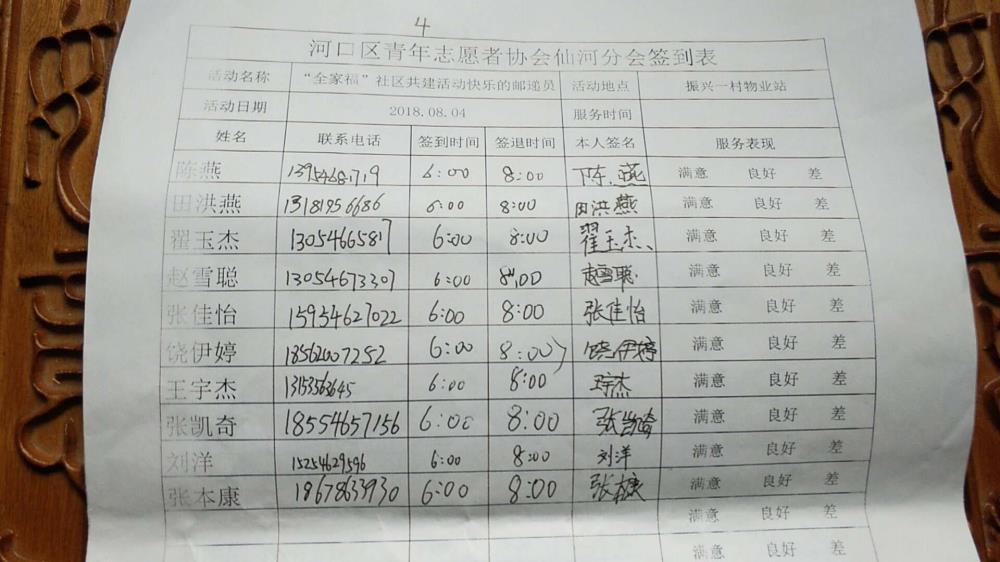 4
河口区青年志愿者协会仙河分会签到表
活动名称 “全家福”社区共建活动快乐的邮递员 活动地点 振兴一村物业站
活动日期 2018.08.04 服务时间
姓名 联系电话 签到时间 签退时间 本人签名 服务表现
陈燕 13954681719 6:00 8:00 陈燕 满意 良好 差
田洪燕 13181956686 6:00 8:00 田洪燕 满意 良好 差
翟玉杰 13054665817 6:00 8:00 翟玉杰 满意 良好 差
赵雪聪 13054673307 6:00 8:00 赵雪聪 满意 良好 差
张佳怡 15954627022 6:00 8:00 张佳怡 满意 良好 差
饶伊婷 18562007252 6:00 8:00 饶伊婷 满意 良好 差
王宇杰 6:00 8:00 王宇杰 满意 良好 差
张凯奇 18554657156 6:00 8:00 张凯奇 满意 良好 差
刘洋 15254629596 6:00 8:00 刘洋 满意 良好 差
张本康 18678633930 6:00 8:00 张本康 满意 良好 差
满意 良好 差
满意 良好 差